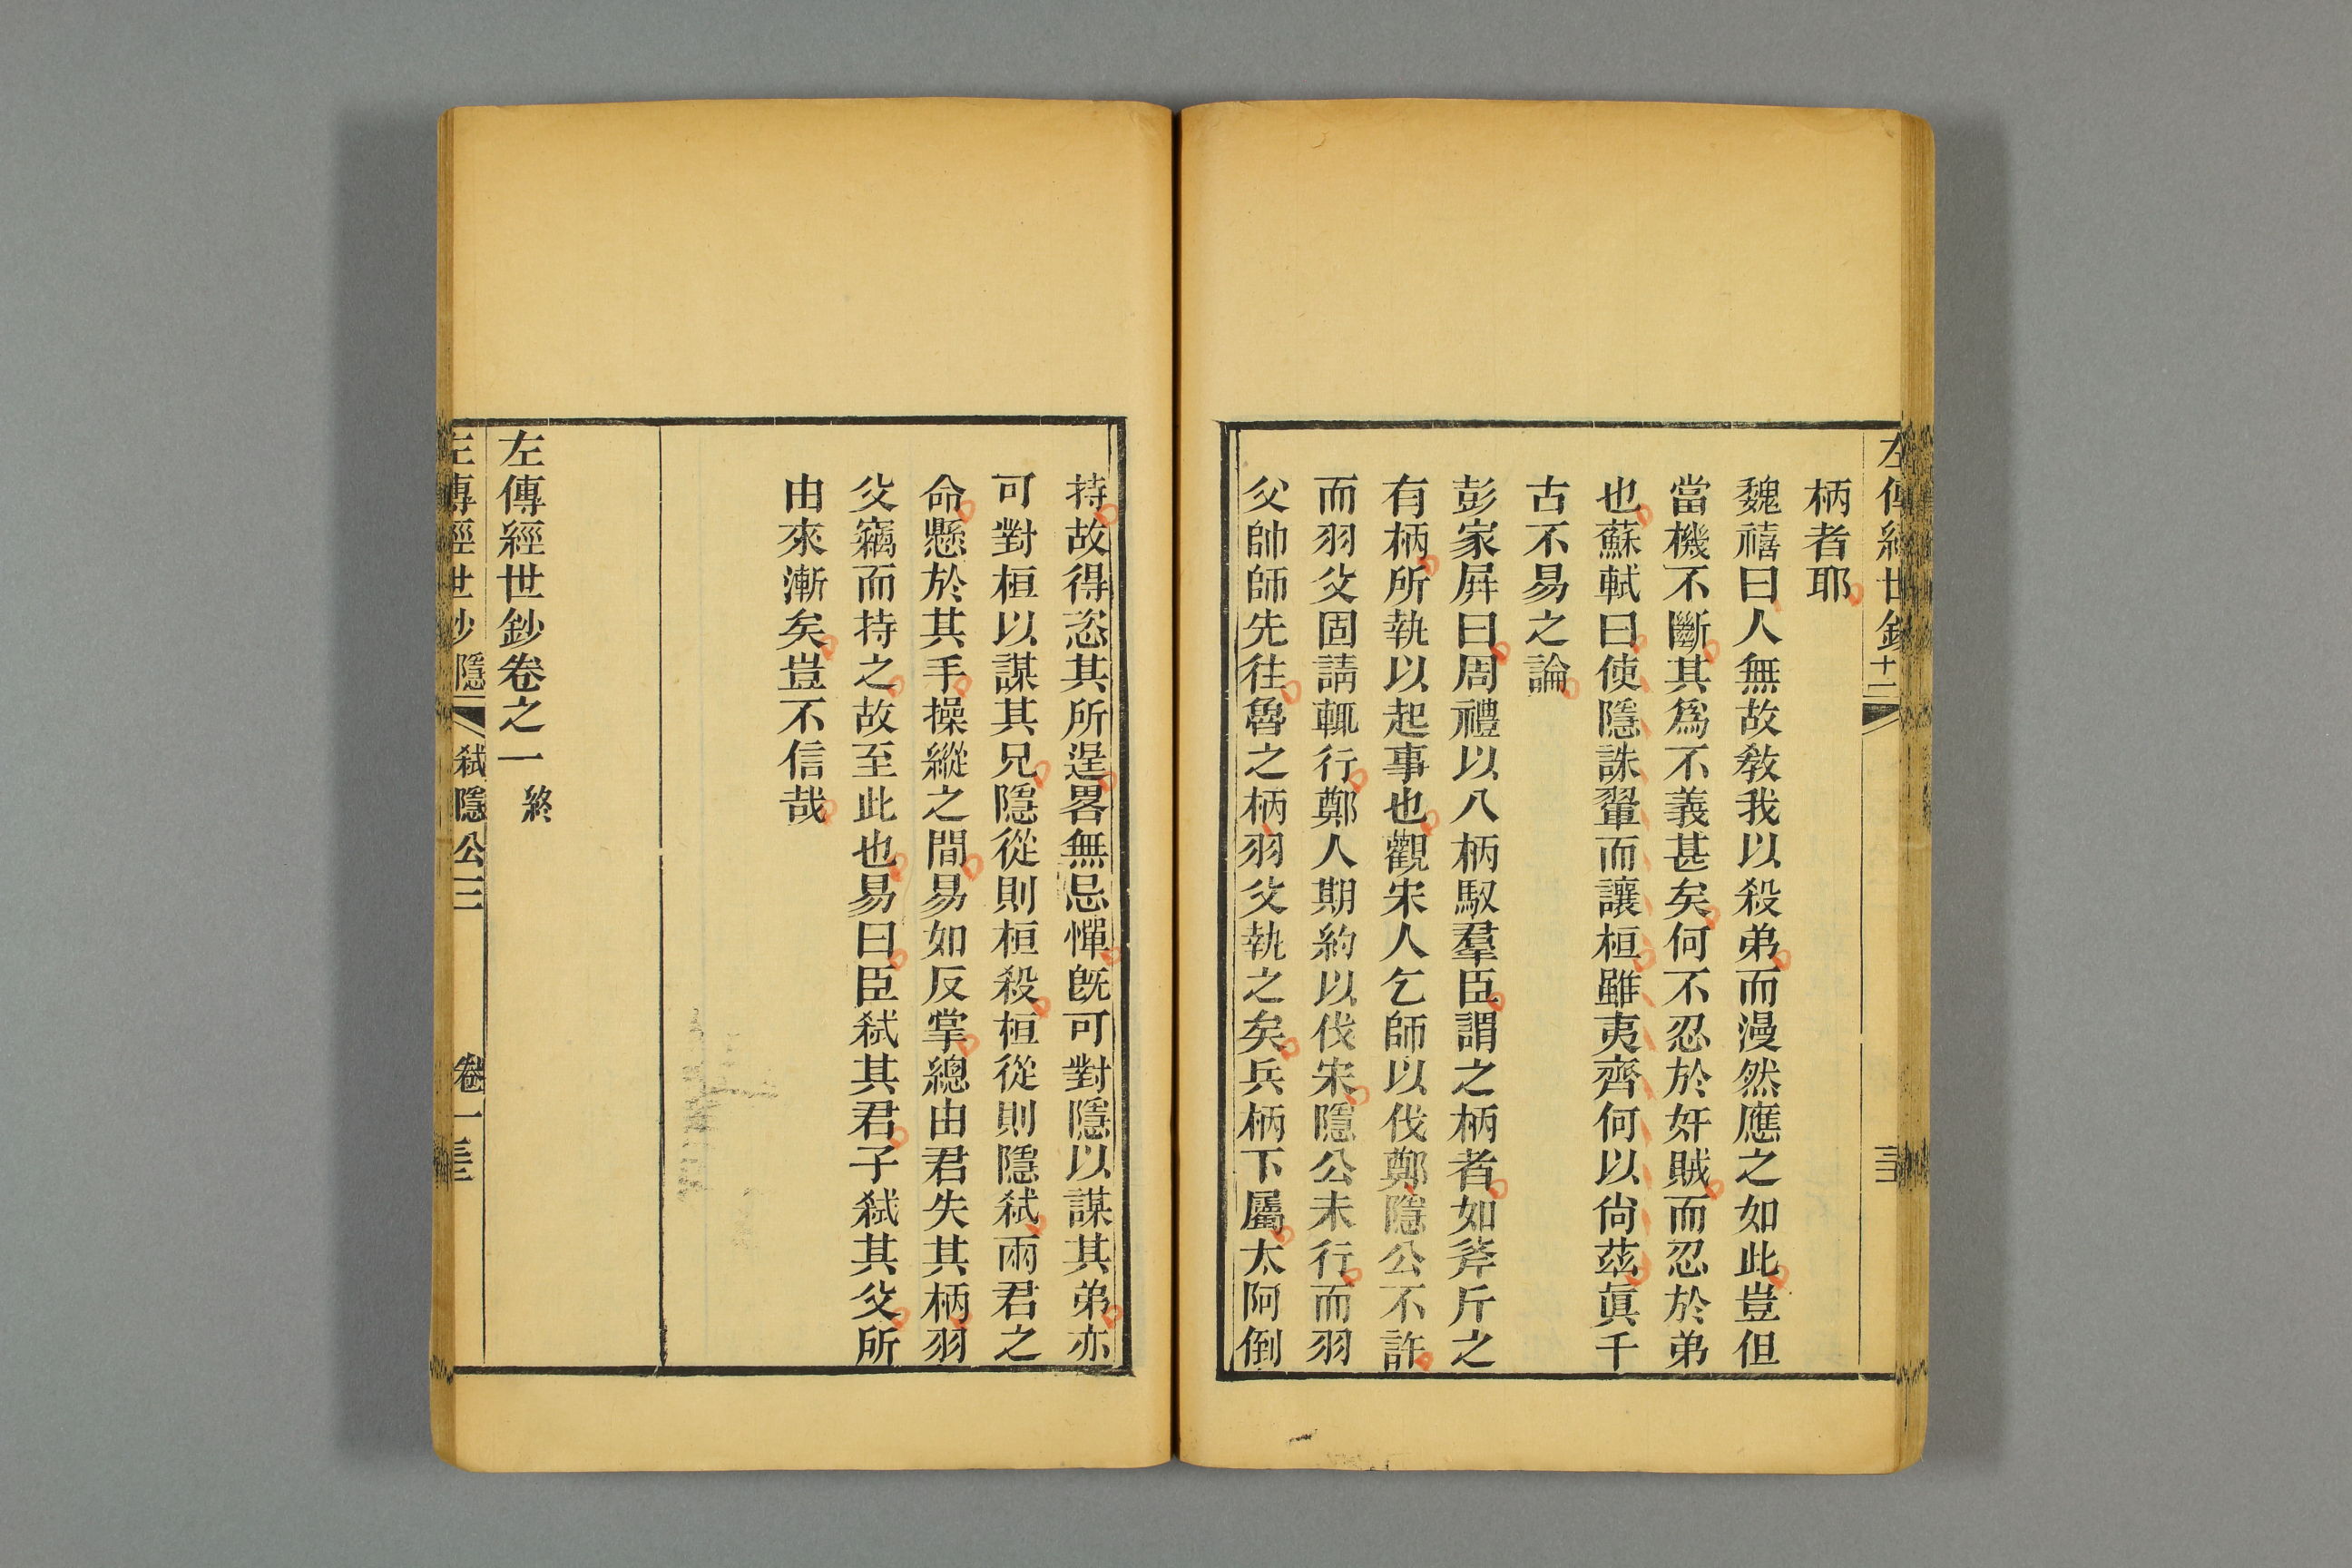 左傳經世鈔
十一
柄者耶
魏禧曰人無故敎我以殺弟而漫然應之如此豈但
當機不斷其爲不義甚矣何不忍於奸賊而忍於弟
也蘇軾曰使隱誅翬而讓桓雖夷齊何以尙茲眞千
古不易之論
彭家屛曰周禮以八柄馭羣臣謂之柄者如斧斤之
有柄所執以起事也觀宋人乞師以伐鄭隱公不許
而羽父固請輒行鄭人期約以伐宋隱公未行而羽
父帥師先往魯之柄羽父執之矣兵柄下屬太阿倒
持故得恣其所逞畧無忌憚旣可對隱以謀其弟亦
可對桓以謀其兄隱從則桓殺桓從則隱弑兩君之
命懸於其手操縱之間易如反掌總由君失其柄羽
父竊而持之故至此也易曰臣弑其君子弑其父所
由來漸矣豈不信哉
左傳經世鈔卷之一 終
左傳經世鈔 隱 弑隱公三 卷一